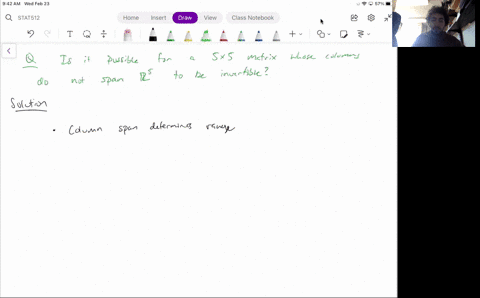 9:42 AM Wed Feb 23
57%
STAT512
Home Insert Draw View Class Notebook
Q Is it possible for a 5x5 matrix whose columns
do not span ℝ⁵ to be invertible?
Solution
• Column span determines range